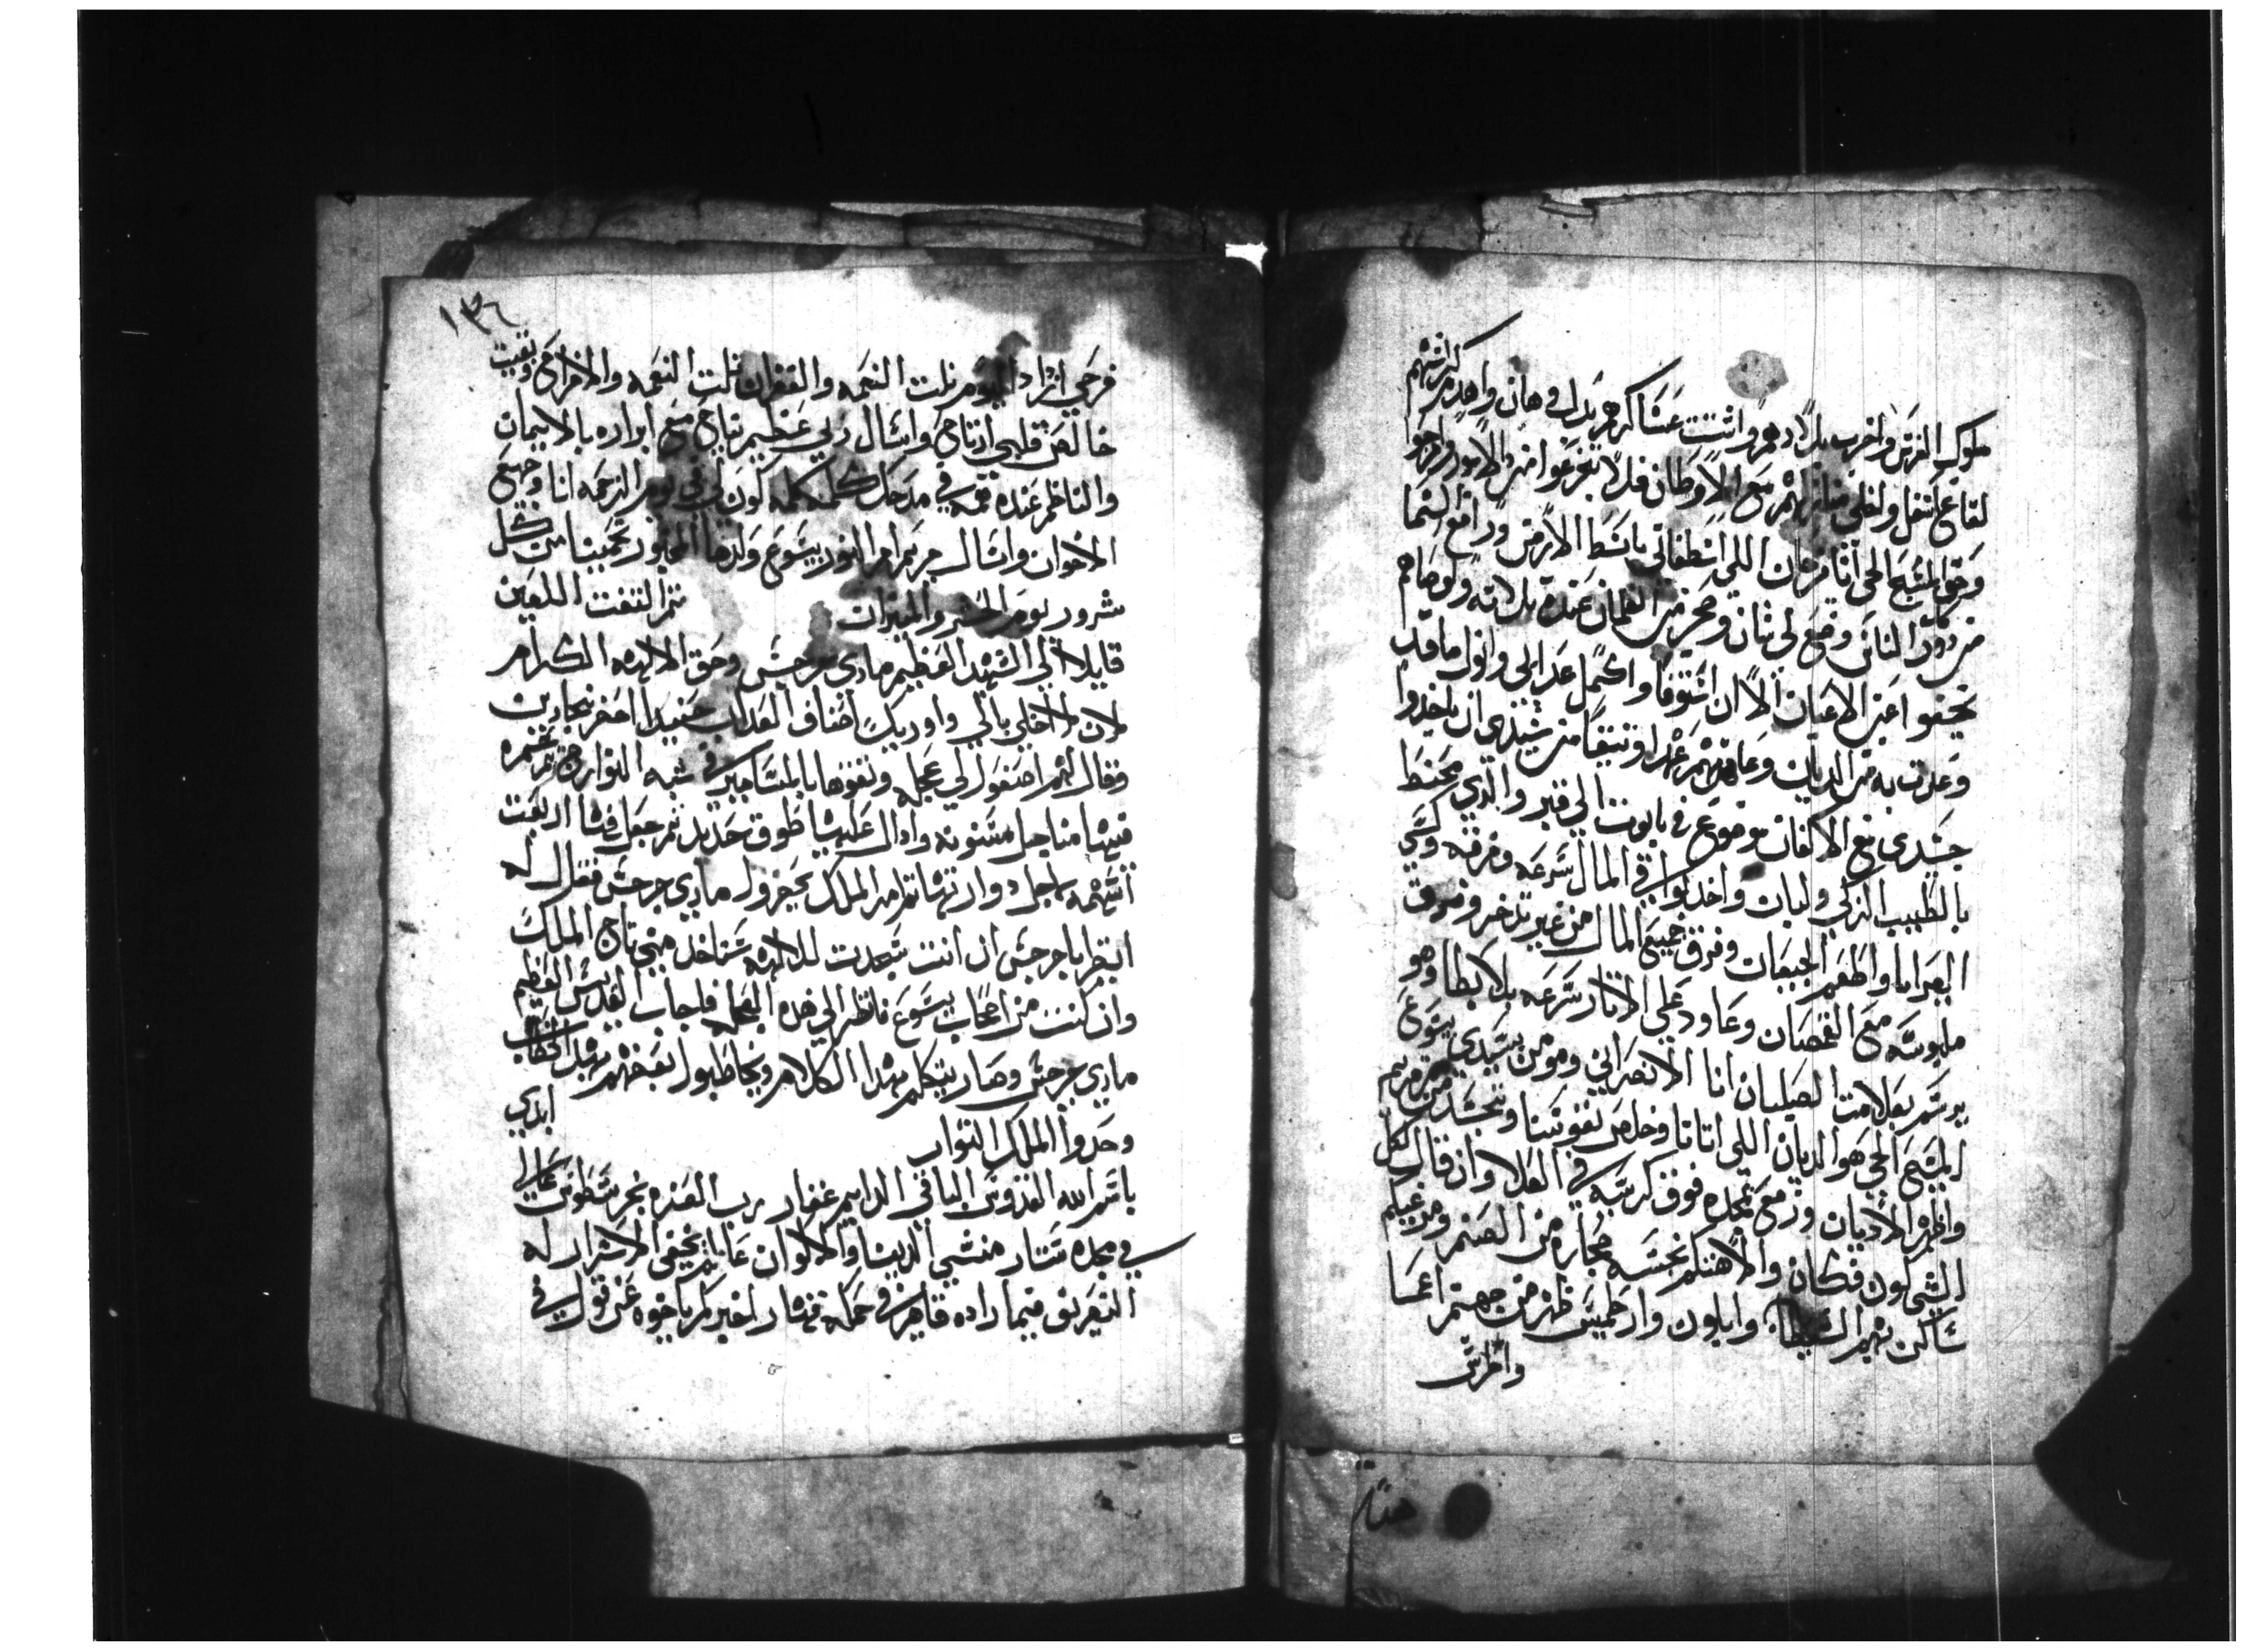 ملوك الفرس واخرب بلادهم واشتت عساكرهم بدا وهان واهدم كراسيهم
لقاع اسفل واخلي منازلهم مع الاوطان فلا تفزعوا منه والاجود اوجهو
وحق المسيح الحي اتا من الله اسطفاني باسط الارض ورافع السما
من دون الناس وضع لي شان ومحرض الغلمان عنده بلاته ولوصاهم
يخفو اعين الاعيان الا ان استوفا واكمل عدابي وانول ماقد
وعدت به من الديان وعاهدهم عهدا وثيقا من سيدي ان ياخدوا
جسدي مع الاكفان موضوع في تابوت الي قبر والذي محنط
بالطيب الزكي ولبان واخدوا في المال سرعه وفرقه وكسي
العرايا واطعم الجيعات وفرق جميع المال من غير تدخر وفروق
ملبوسه مع القمصان وعاود علي الاتار سرعه بلا ابطا وهو
يرسم بعلامت الصلبان انا الانصراني ومومن بسيدي يسوع
المسيح الحي هو الديان اللي اتانا وخلص نفوسنا وتجسد من مريم
واظهر الاديان ورفع بمجده فوق كرسيه في العلا وان قال لكل
الشي كون فكان والاهتكم نجسه حجاره من الصنم ومن غيكم
ساكن بهم الشيطان وابلون وارطميس ظهر من جهنم اعما
واخرس
١٣٦
فرحي ازداد اليوم نلت النعمه والغفران نلت النعمه والافراح وبقيت
خالص قلبي ارتاح واسال ربي عظيم نتاج مع ابراره بالايمان
والناظم عنده همه في مدحك كلمه كلمه كون لي في يوم الزحمه انا وجميع
الاخوان واسال مريم ام النور يسوع ولدها المجبور تحمينا من كل
شرور يوم الحشر والميزان ثم التفت اللعين
قايلا الي الشهيد العظيم ماري جرجس وحق الالهه الكرام
لان لا اخلي بالي واوريك اصناف العداب حنيدا احضر نجارين
وقال لهم اصنعوا لي عجله ونفوها بالمسامير في شبه التوارج ثم غمره
فيها مناجل مسنونه وادال عليها طوق حديد ثم جعل فيها اربعت
اسهمه لاجل دوارتها ثم امر الملك يحضرول ماري جرجس فقال له
انظر يا جرجس ان انت سجدت للالهه ستاخد مني تاج الملك
وان كنت من اصحاب يسوع فانظر الي هده العجله فاجاب القديس العظيم
ماري جرجس وصار يتكلم بهدا الكلام ويخاطبول بعضهم بهدا الخطاب
وحدوا الملك التواب ابدي
باسم الله القدوس الباقي الدايم غفار رب العزه نحن سطوته عالا
في مجده ستار منشي الدنيا والاكوان عالم يخفي الاسرار له
التعريف فيما راده قاهر في حكمه قهار اخبركم ياخوه عن قول في